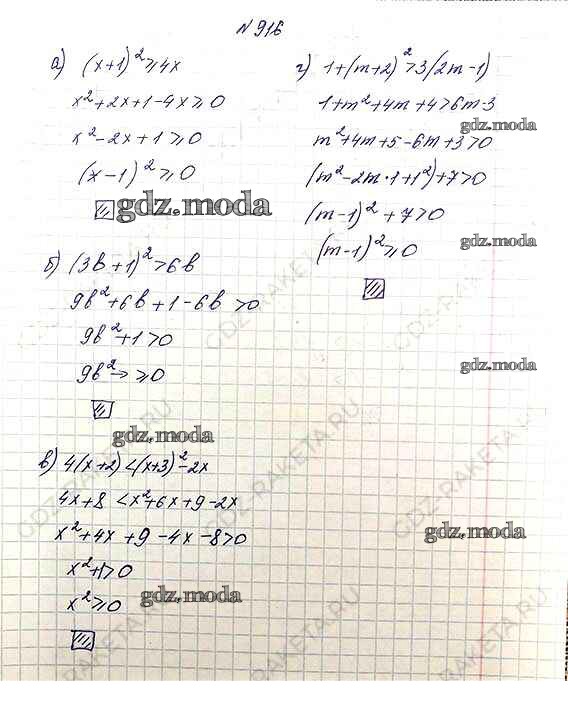 № 916
а) (x+1)² ⩾ 4x
x²+2x+1-4x ⩾ 0
x²-2x+1 ⩾ 0
(x-1)² ⩾ 0
gdz.moda
б) (3b+1)² > 6b
9b²+6b+1-6b > 0
9b²+1 > 0
9b² -> ⩾ 0
gdz.moda
в) 4(x+2) < (x+3)² - 2x
4x+8 < x²+6x+9-2x
x²+4x+9-4x-8 > 0
x²+1 > 0
x² ⩾ 0
gdz.moda
г) 1+(m+2)² > 3(2m-1)
1+m²+4m+4 > 6m-3
gdz.moda
m²+4m+5-6m+3 > 0
(m²-2m·1+1²)+7 > 0
(m-1)²+7 > 0
(m-1)² ⩾ 0
gdz.moda
gdz.moda
gdz.moda
GDZ-RAKETA.RU
GDZ-RAKETA.RU
GDZ-RAKETA.RU
GDZ-RAKETA.RU